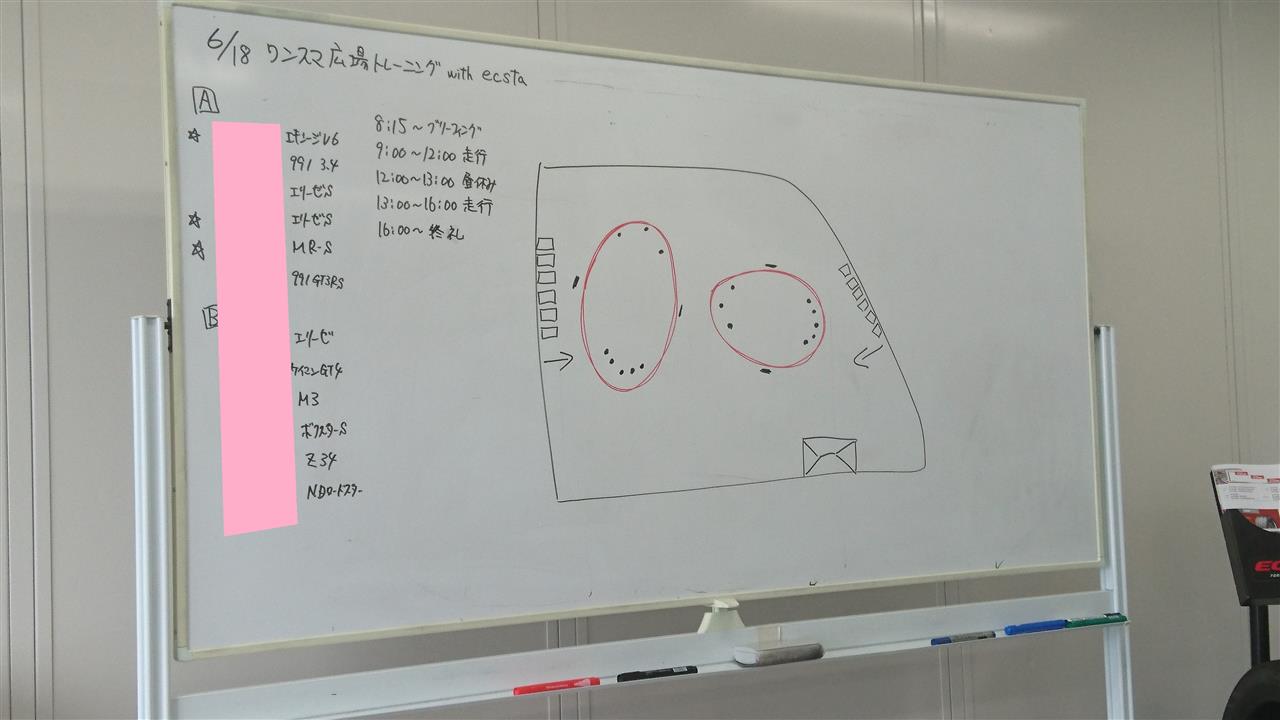 6/18 ワンスマ広場トレーニング with ecsta
A
☆ エキシージV6
991 3.4
エリーゼS
☆ エリーゼS
☆ MR-S
991 GT3RS
B
エリーゼ
ケイマンGT4
M3
ボクスターS
Z34
NDロードスター
8:15～ブリーフィング
9:00～12:00 走行
12:00～13:00 昼休み
13:00～16:00 走行
16:00～ 終礼